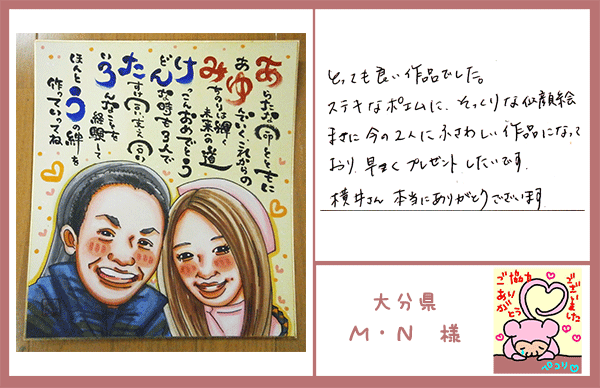 あらたな命とともに
あゆんでいくこれからの
みちのりは輝く
未来の道
けっこんおめでとう
どんな時も2人で
たすけ合い支え合い
いろんなことを
経験して
ほんとうの絆を
作っていってね
とっても良い作品でした。
ステキなポエムに、そっくりな似顔絵
まさに今の2人にふさわしい作品になって
おり、早くプレゼントしたいです。
横井さん 本当にありがとうございます
大分県
M・N 様
ご協力
ありがとう
ございました
ペコリ